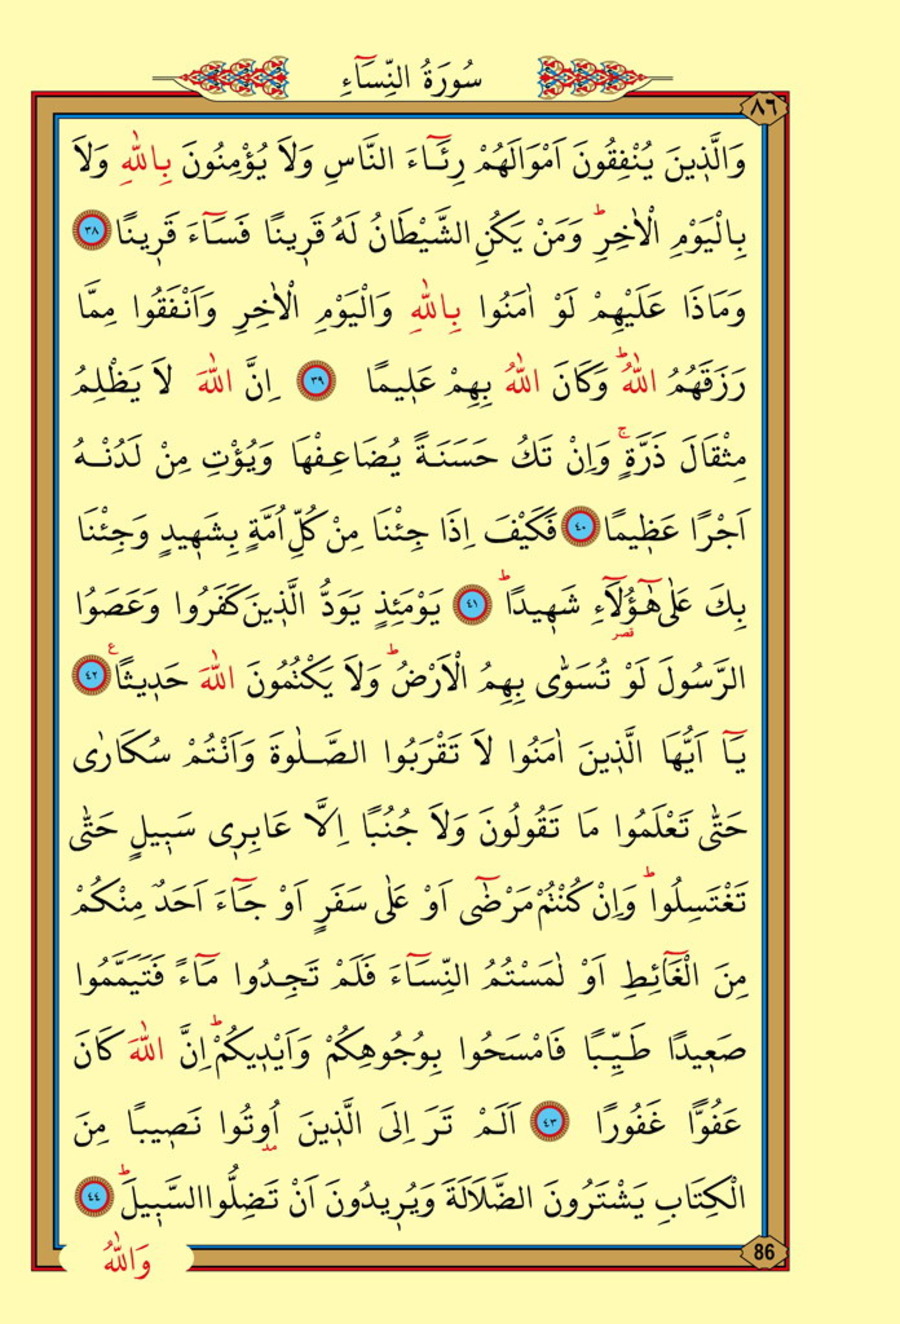 سُورَةُ النِّسَٓاءِ
٨٦
وَالَّذ۪ينَ يُنْفِقُونَ اَمْوَالَهُمْ رِئَٓاءَ النَّاسِ وَلَا يُؤْمِنُونَ بِاللّٰهِ وَلَا
بِالْيَوْمِ الْاٰخِرِۜ وَمَنْ يَكُنِ الشَّيْطَانُ لَهُ قَر۪ينًا فَسَٓاءَ قَر۪ينًا ﴿٣٨﴾
وَمَاذَا عَلَيْهِمْ لَوْ اٰمَنُوا بِاللّٰهِ وَالْيَوْمِ الْاٰخِرِ وَاَنْفَقُوا مِمَّا
رَزَقَهُمُ اللّٰهُۜ وَكَانَ اللّٰهُ بِهِمْ عَل۪يمًا ﴿٣٩﴾ اِنَّ اللّٰهَ لَا يَظْلِمُ
مِثْقَالَ ذَرَّةٍۚ وَاِنْ تَكُ حَسَنَةً يُضَاعِفْهَا وَيُؤْتِ مِنْ لَدُنْهُ
اَجْرًا عَظ۪يمًا ﴿٤٠﴾ فَكَيْفَ اِذَا جِئْنَا مِنْ كُلِّ اُمَّةٍ بِشَه۪يدٍ وَجِئْنَا
بِكَ عَلٰى هٰٓؤُ۬لَٓاءِ شَه۪يدًاۜ ﴿٤١﴾ يَوْمَئِذٍ يَوَدُّ الَّذ۪ينَ كَفَرُوا وَعَصَوُا
قصر
الرَّسُولَ لَوْ تُسَوّٰى بِهِمُ الْاَرْضُۜ وَلَا يَكْتُمُونَ اللّٰهَ حَد۪يثًا ع ﴿٤٢﴾
يَٓا اَيُّهَا الَّذ۪ينَ اٰمَنُوا لَا تَقْرَبُوا الصَّلٰوةَ وَاَنْتُمْ سُكَارٰى
حَتّٰى تَعْلَمُوا مَا تَقُولُونَ وَلَا جُنُبًا اِلَّا عَابِر۪ى سَب۪يلٍ حَتّٰى
تَغْتَسِلُواۜ وَاِنْ كُنْتُمْ مَرْضٰٓى اَوْ عَلٰى سَفَرٍ اَوْ جَٓاءَ اَحَدٌ مِنْكُمْ
مِنَ الْغَٓائِطِ اَوْ لٰمَسْتُمُ النِّسَٓاءَ فَلَمْ تَجِدُوا مَٓاءً فَتَيَمَّمُوا
صَع۪يدًا طَيِّبًا فَامْسَحُوا بِوُجُوهِكُمْ وَاَيْد۪يكُمْۜ اِنَّ اللّٰهَ كَانَ
عَفُوًّا غَفُورًا ﴿٤٣﴾ اَلَمْ تَرَ اِلَى الَّذ۪ينَ اُو۫تُوا نَص۪يبًا مِنَ
مد
الْكِتَابِ يَشْتَرُونَ الضَّلَالَةَ وَيُر۪يدُونَ اَنْ تَضِلُّوا السَّب۪يلَۜ ﴿٤٤﴾
وَاللّٰهُ
86